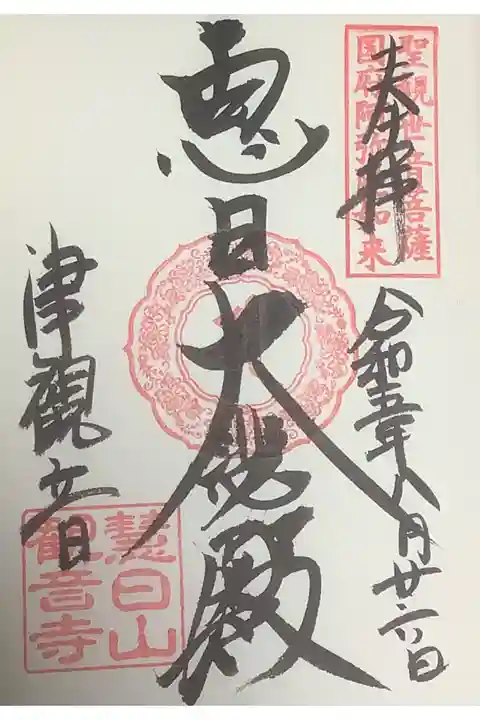 奉拝
聖観世音菩薩
国府阿弥陀如来
令和五年八月廿六日
恵日大悲殿
津觀音
慧日山
觀音寺